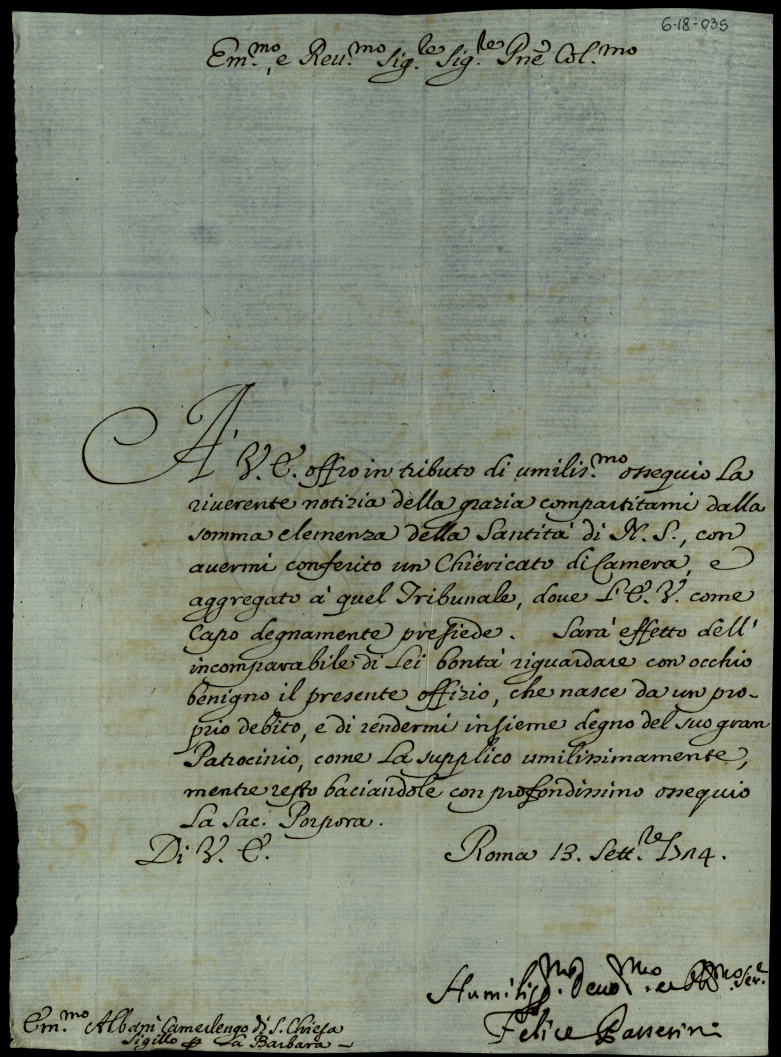 6-18-035
Em.mo, e Reu.mo Sig.re Sig.re Prne Col.mo
A' V. E. offro in tributo di umilis.mo ossequio La
riuerente notizia della grazia compartitami dalla
somma clemenza della Santità di N. S., con
auermi conferito un Chiericato di Camera, e
aggregato à quel Tribunale, doue L'E. V. come
Capo degnamente presiede. Sarà effetto dell'
incomparabile di Lei bontà riguardare con occhio
benigno il presente offizio, che nasce da un pro-
prio debito, e di rendermi insieme degno del suo gran
Patrocinio, come La supplico umilissimamente,
mentre resto baciandole con profondissimo ossequio
La Sac. Porpora.
Di V. E. Roma 13. Sett.re 1714.
Humiliss.mo Deuo.mo et Obb.mo Ser.e
Felice Passerini
Em.mo Albani Camerlengo di S. Chiesa
Sigillo p La Barbara -